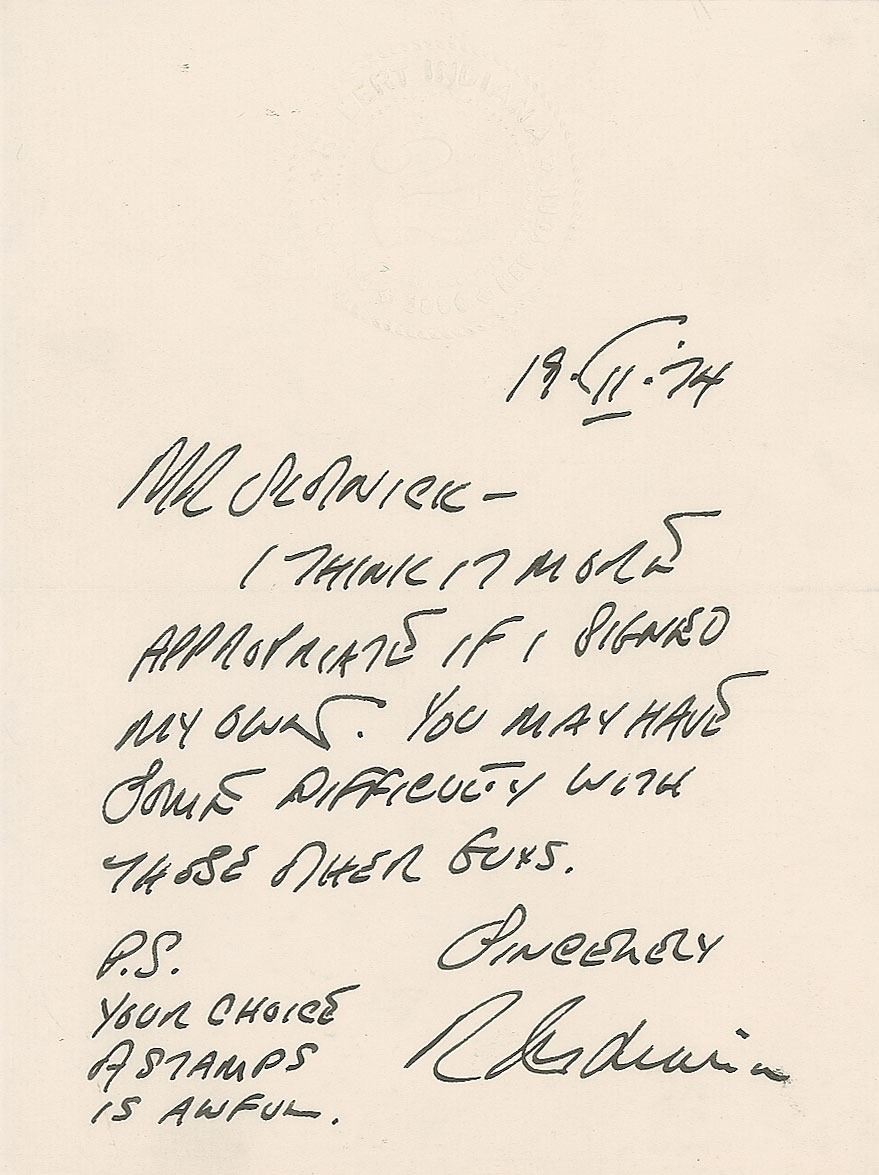 INDIANA
19.II.74
MR
I THINK IT MORE
APPROPRIATE IF I SIGNED
MY OWN. YOU MAY HAVE
SOME DIFFICULTY WITH
THOSE OTHER GUYS.
SINCERELY
R Indiana
P.S.
YOUR CHOICE
A STAMPS
IS AWFUL.